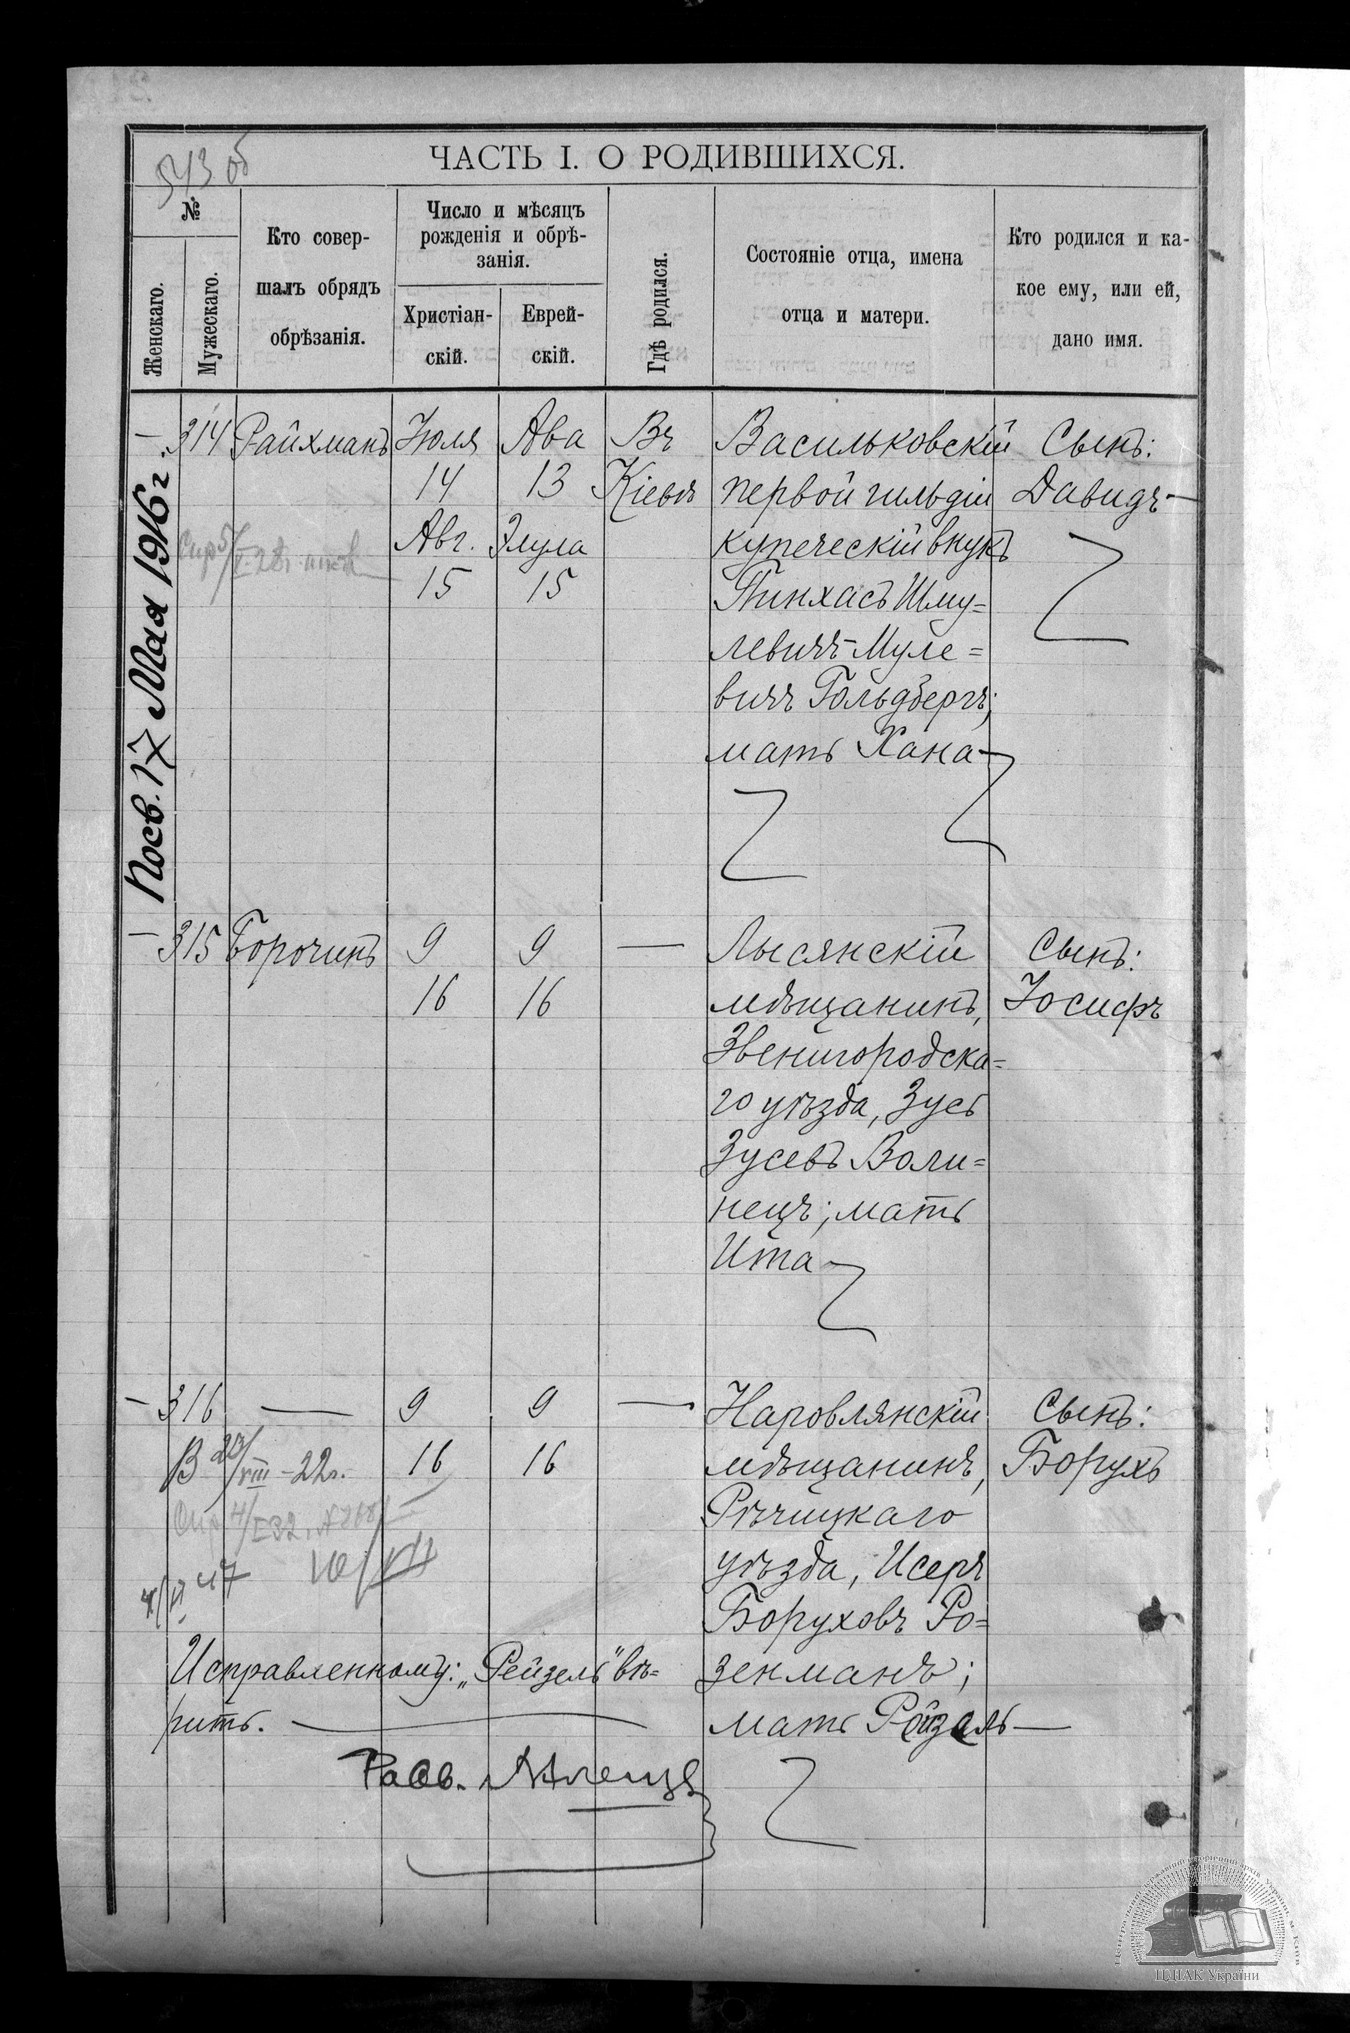 543 об
ЧАСТЬ I. О РОДИВШИХСЯ.
№
Женскаго.
Мужескаго.
Кто совер-
шалъ обрядъ
обрѣзанія.
Число и мѣсяцъ
рожденія и обрѣ-
занія.
Христіан-
скій.
Еврей-
скій.
Гдѣ родился.
Состояніе отца, имена
отца и матери.
Кто родился и ка-
кое ему, или ей,
дано имя.
Посв. 17 Мая 1916 г.
— 314
Райхманъ
Іюля
14
Авг.
15
Ава
13
Элула
15
Въ
Кіевѣ
Васильковскій
первой гильдіи
купеческій внукъ
Пинхасъ Шму=
левичъ-Муле=
вичъ Гольдбергъ;
мать Хана
Сынъ:
Давидъ—
— 315
Борочинъ
9
16
9
16
—
Лысянскій
мѣщанинъ,
Звенигородска=
го уѣзда, Зусь
Зусевъ Воли=
нецъ; мать
Ита
Сынъ:
Іосифъ
— 316
—
9
16
9
16
—
Наровлянскій
мѣщанинъ,
Рѣчицкаго
уѣзда, Исеръ
Боруховъ Ро=
зенманъ;
мать Рейзель—
Сынъ:
Борухъ
В 20/VIII-22г.
47
Исправленному: „Рейзель" вѣ=
рить.
Равв.
ЦДІАК України